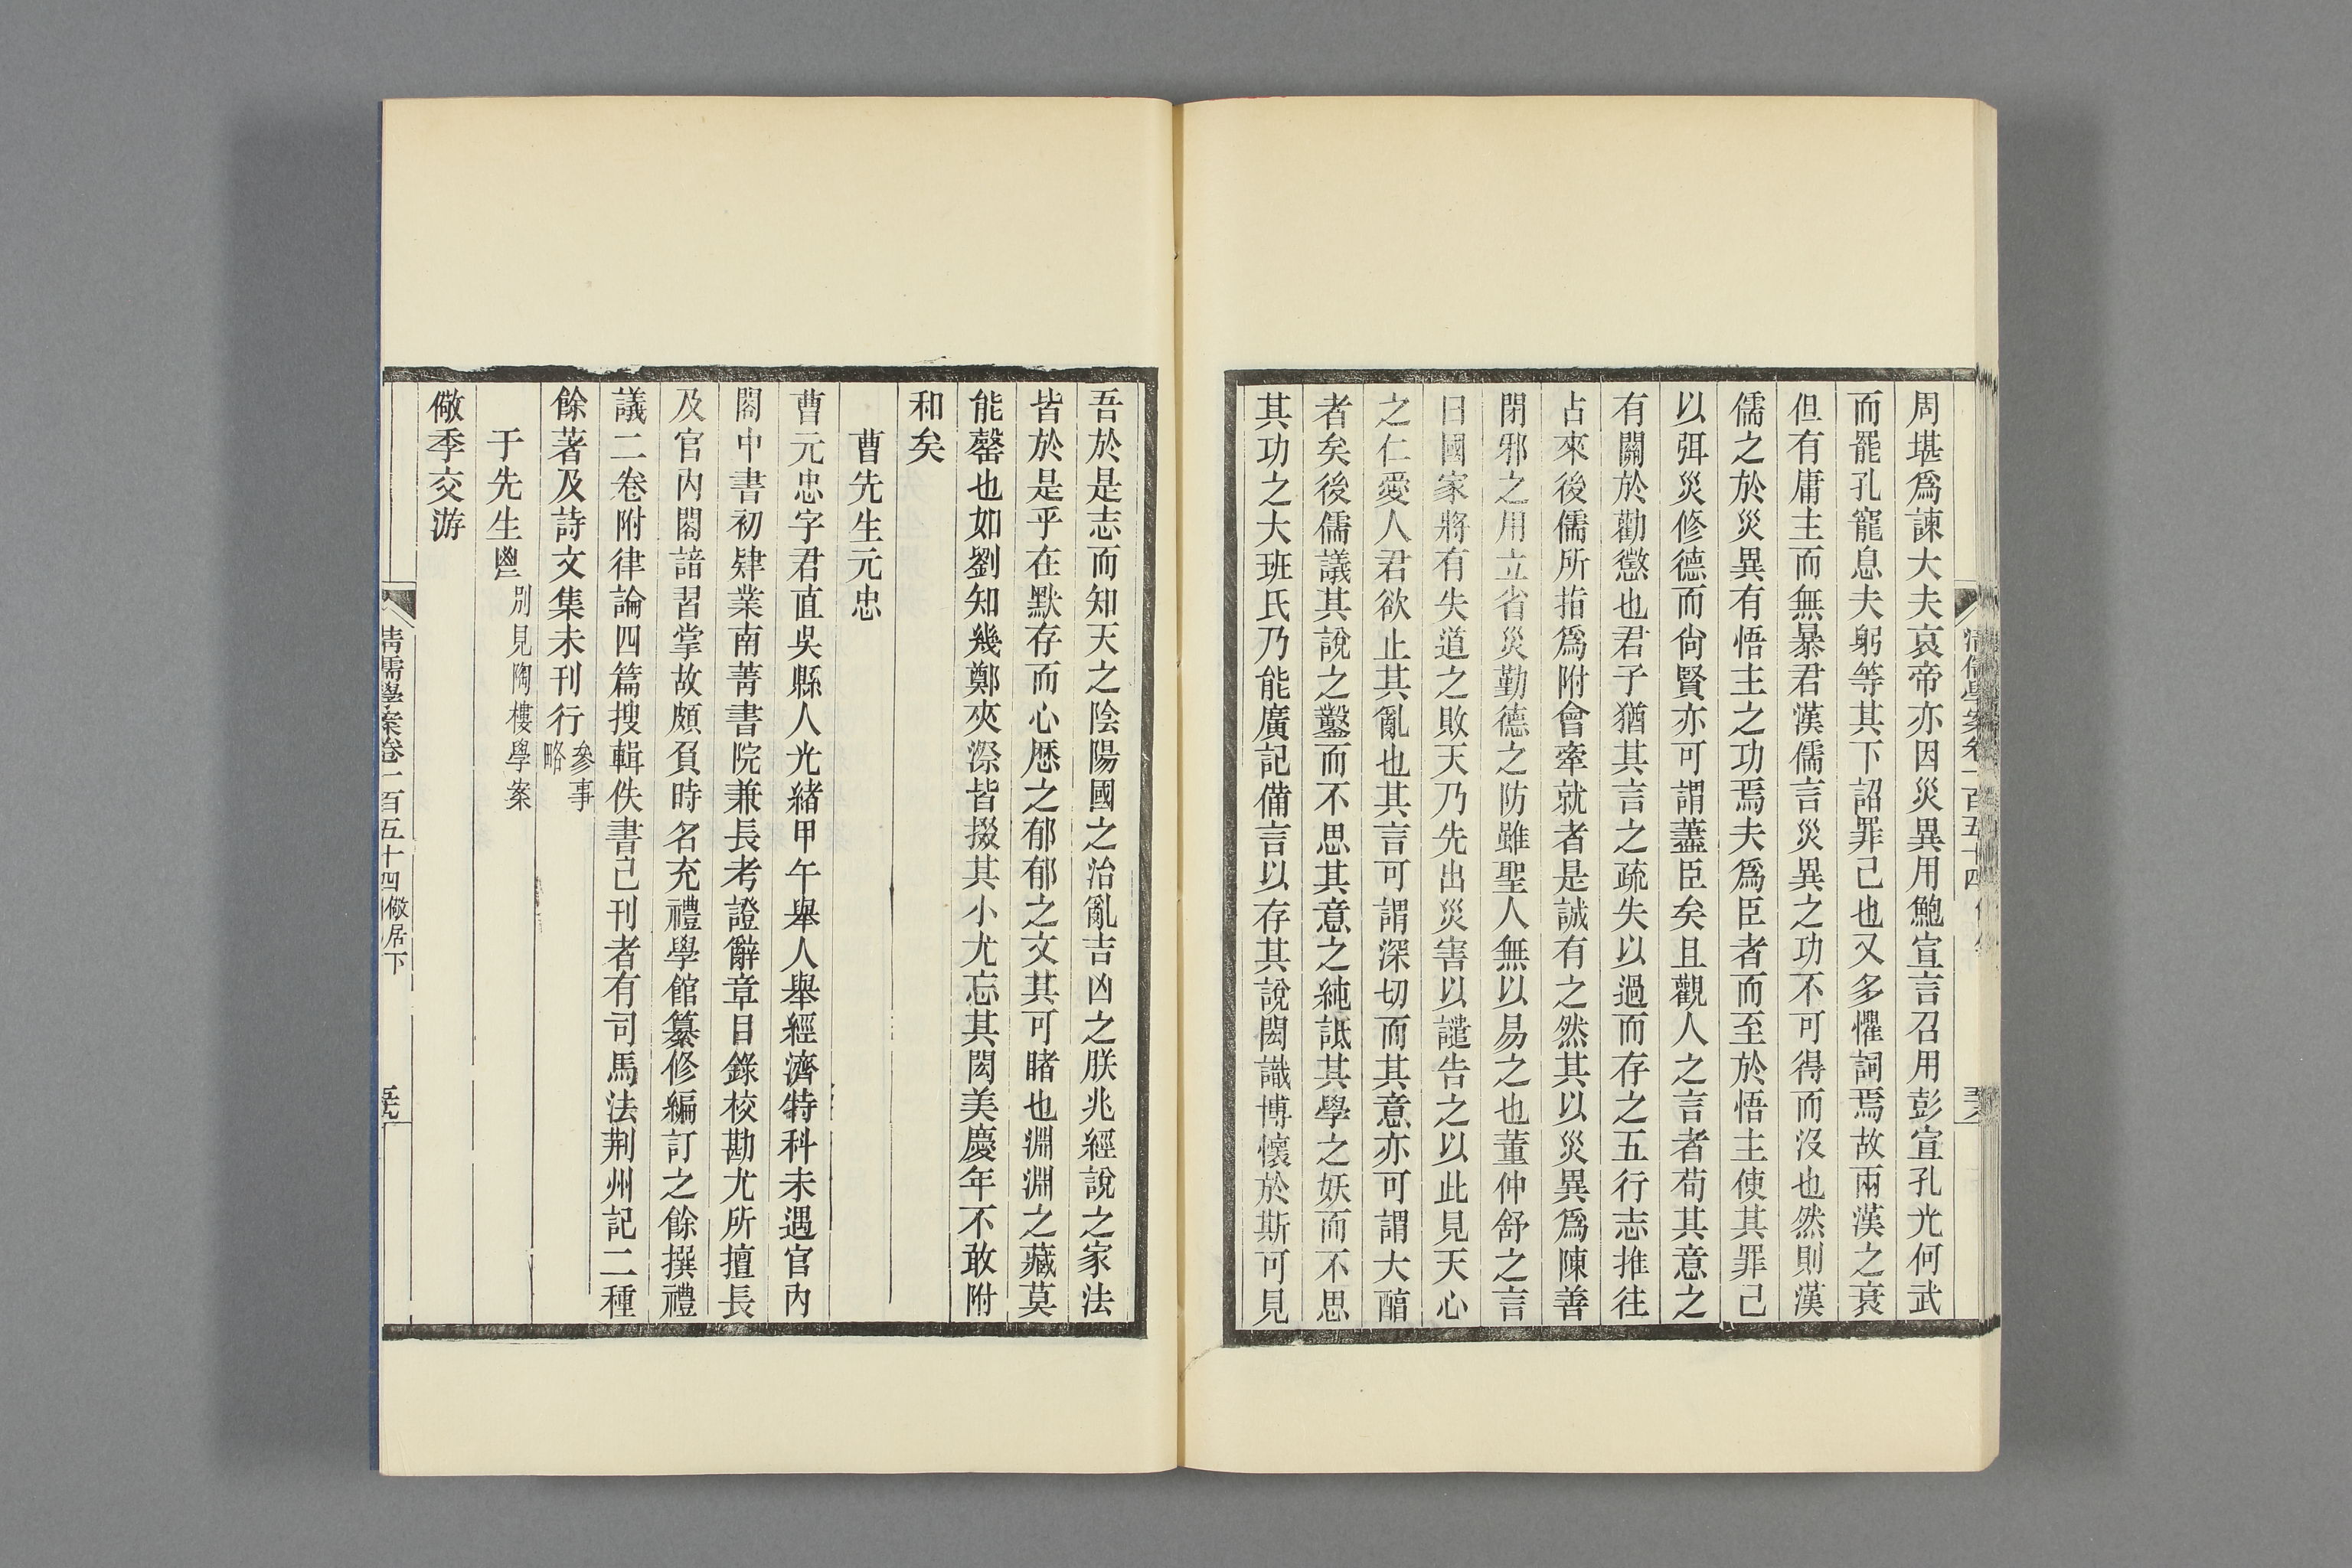 周堪爲諫大夫哀帝亦因災異用鮑宣言召用彭宣孔光何武
而罷孔寵息夫躬等其下詔罪己也又多懼詞焉故兩漢之衰
但有庸主而無暴君漢儒言災異之功不可得而沒也然則漢
儒之於災異有悟主之功焉夫爲臣者而至於悟主使其罪己
以弭災修德而尙賢亦可謂藎臣矣且觀人之言者苟其意之
有關於勸懲也君子猶其言之疏失以過而存之五行志推往
占來後儒所指爲附會牽就者是誠有之然其以災異爲陳善
閉邪之用立省災勤德之防雖聖人無以易之也董仲舒之言
曰國家將有失道之敗天乃先出災害以譴告之以此見天心
之仁愛人君欲止其亂也其言可謂深切而其意亦可謂大醕
者矣後儒議其說之鑿而不思其意之純詆其學之妖而不思
其功之大班氏乃能廣記備言以存其說閎識博懷於斯可見
吾於是志而知天之陰陽國之治亂吉凶之朕兆經說之家法
皆於是乎在默存而心歷之郁郁之文其可睹也淵淵之藏莫
能罄也如劉知幾鄭夾漈皆掇其小尤忘其閎美慶年不敢附
和矣
曹先生元忠
曹元忠字君直吳縣人光緒甲午舉人舉經濟特科未遇官內
閣中書初肄業南菁書院兼長考證辭章目錄校勘尤所擅長
及官內閣諳習掌故頗負時名充禮學館纂修編訂之餘撰禮
議二卷附律論四篇搜輯佚書已刊者有司馬法荆州記二種
餘著及詩文集未刊行參事略
于先生鬯別見陶樓學案
儆季交游
清儒學案卷一百五十四儆居下